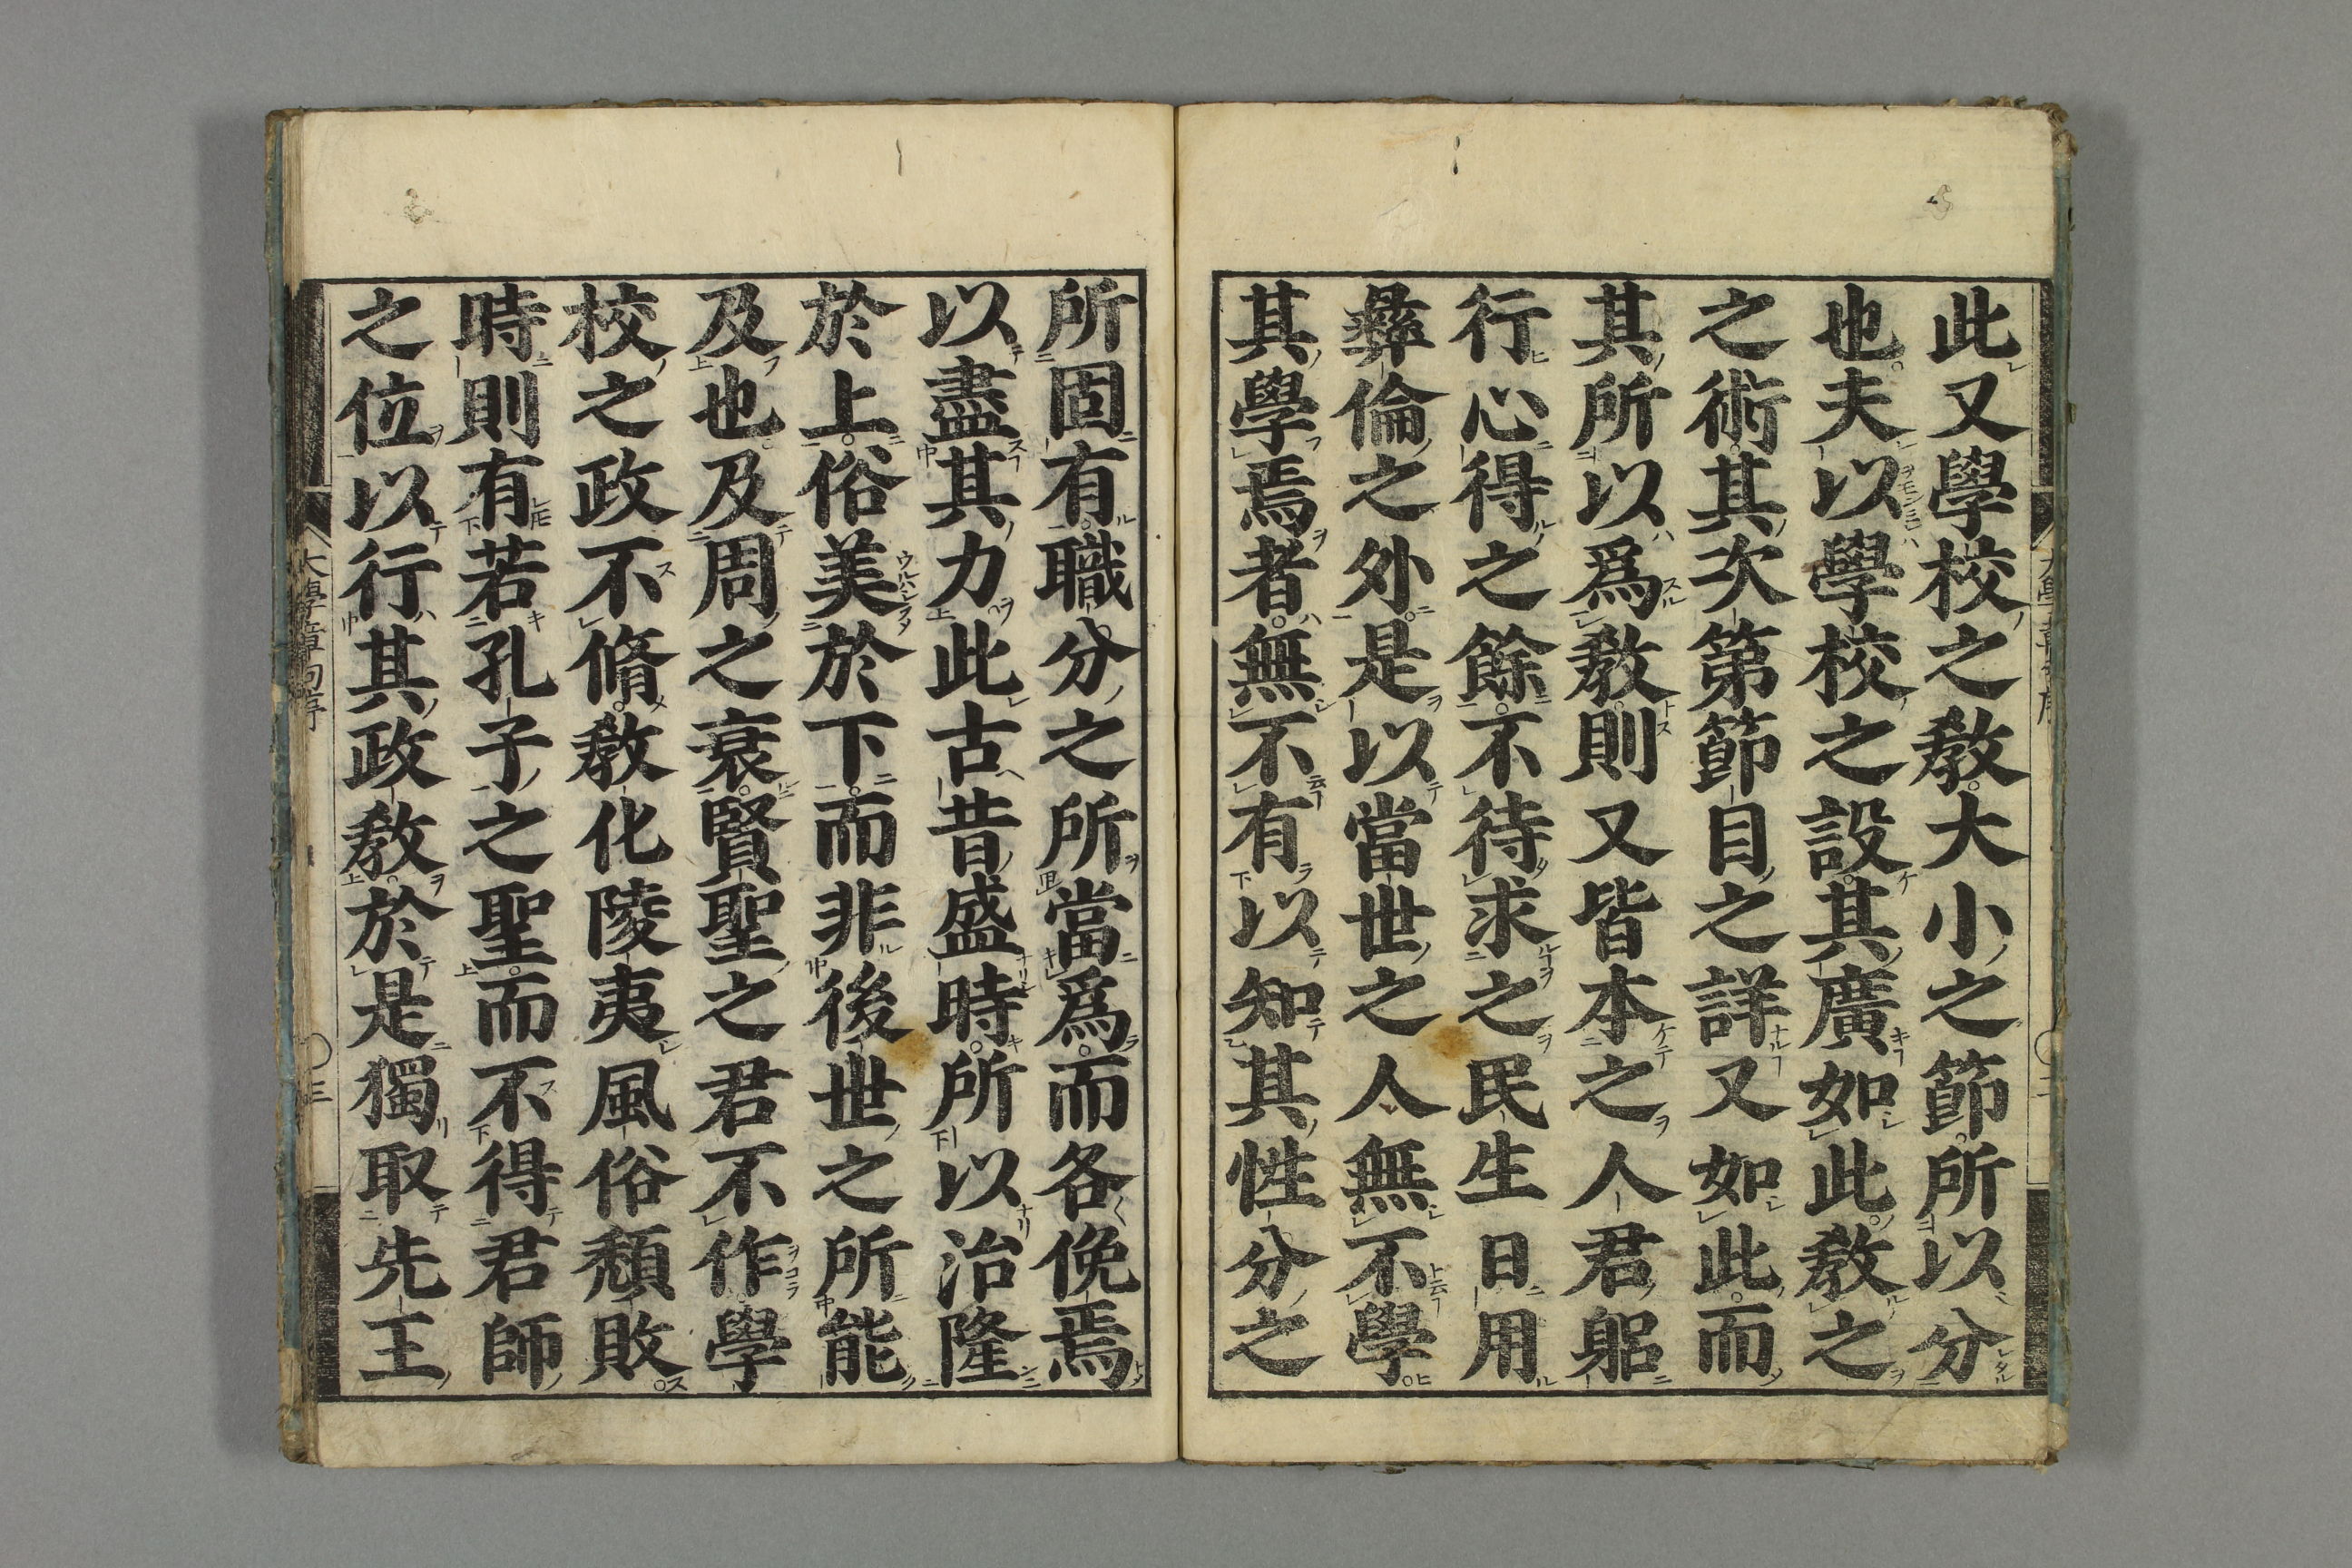 此又學校之敎大小之節所以分
也夫以學校之設其廣如此敎之
之術其次第節目之詳又如此而
其所以爲敎則又皆本之人君躬
行心得之餘不待求之民生日用
彝倫之外是以當世之人無不學
其學焉者無不有以知其性分之
所固有職分之所當爲而各俛焉
以盡其力此古昔盛時所以治隆
於上俗美於下而非後世之所能
及也及周之衰賢聖之君不作學
校之政不脩敎化陵夷風俗頽敗
時則有若孔子之聖而不得君師
之位以行其政敎於是獨取先王
大學章句序
三